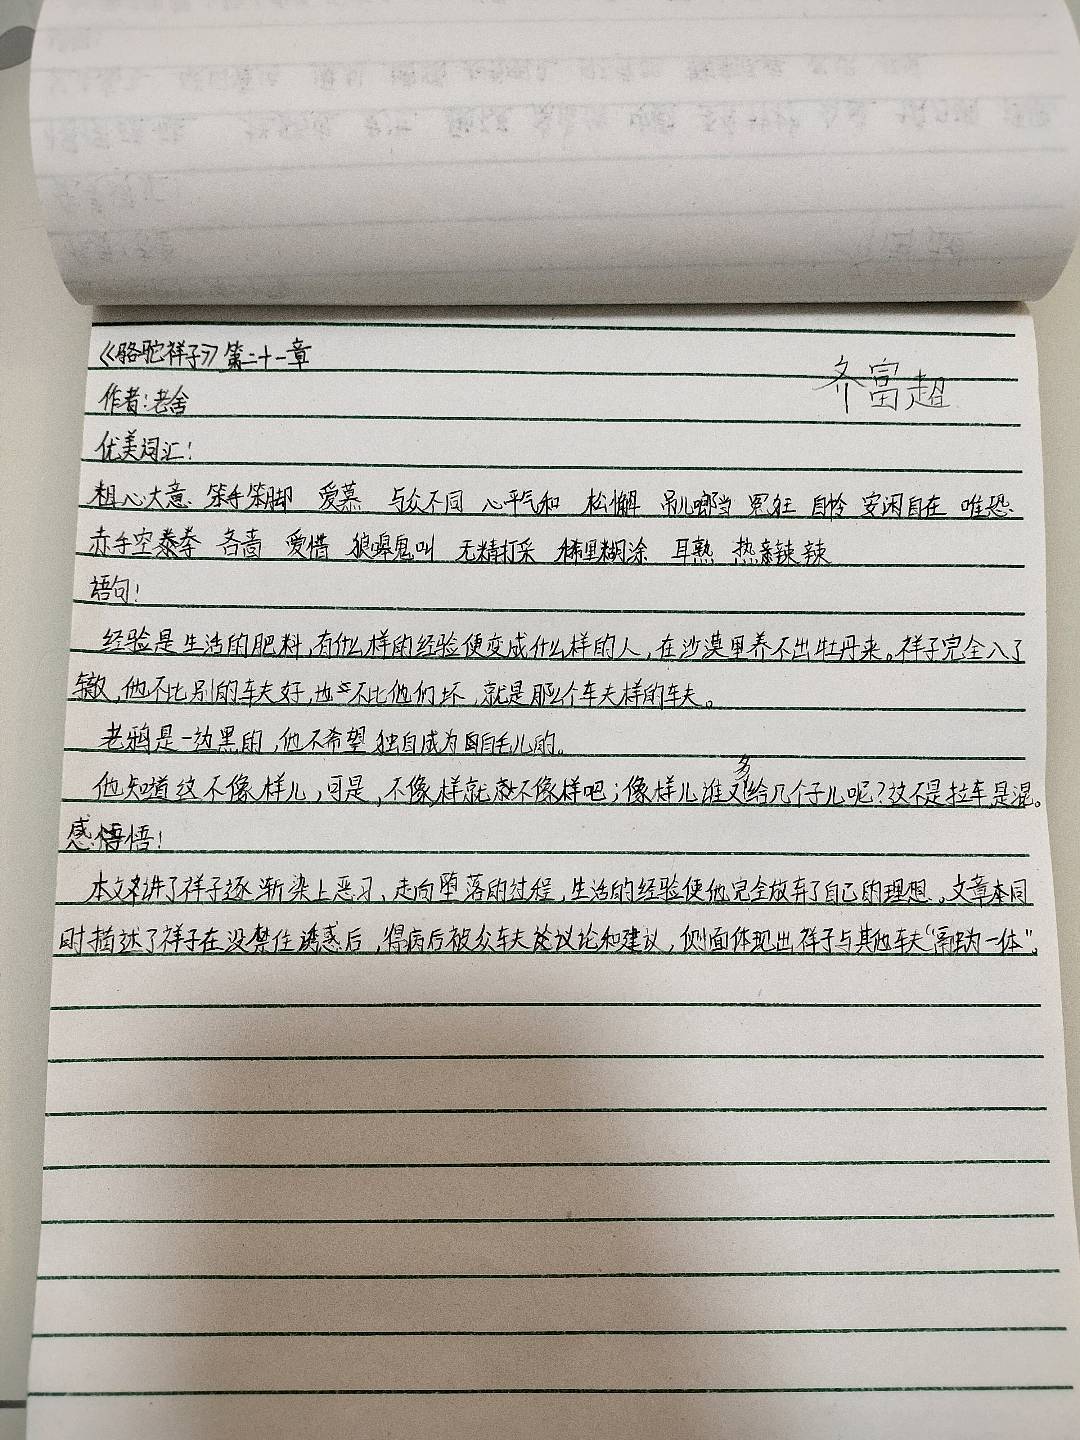 《骆驼祥子》第二十一章
齐富超
作者:老舍
优美词汇!
粗心大意 笨手笨脚 爱慕 与众不同 心平气和 松懈 吊儿啷当 冤枉 自怜 安闲自在 唯恐
赤手空拳 吝啬 爱惜 狼嗥鬼叫 无精打采 稀里糊涂 耳熟 热辣辣
语句!
经验是生活的肥料,有什么样的经验便变成什么样的人,在沙漠里养不出牡丹来。祥子完全入了
辙,他不比别的车夫好,也不比他们坏,就是那么个车夫样的车夫。
老鸦是一边黑的,他不希望独自成为白毛儿的。
他知道这不像样儿,可是,不像样就不像样吧;像样儿谁又多给几个子儿呢?这不是拉车,是混。
感悟!
本文讲了祥子逐渐染上恶习、走向堕落的过程,生活的经验使他完全放弃了自己的理想。文章同
时描述了祥子在没禁住诱惑后,得病后被众车夫议论和建议,侧面体现出祥子与其他车夫“融为一体”。